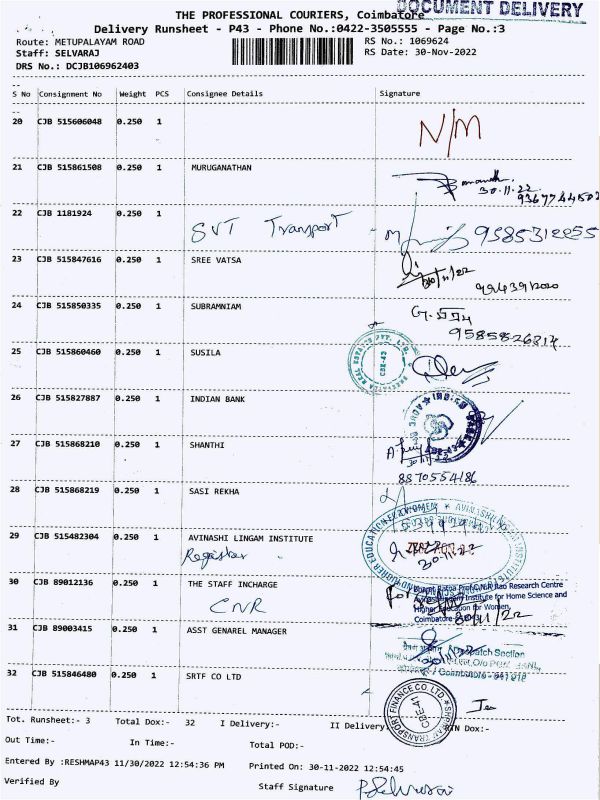 DOCUMENT DELIVERY
THE PROFESSIONAL COURIERS, Coimbatore
Delivery Runsheet - P43 - Phone No.:0422-3505555 - Page No.:3
Route: METUPALAYAM ROAD
RS No.: 1069624
Staff: SELVARAJ
RS Date: 30-Nov-2022
DRS No.: DCJB106962403
S No Consignment No Weight PCS Consignee Details Signature
20 CJB 515606048 0.250 1 N/M
21 CJB 515861508 0.250 1 MURUGANATHAN
30.11.22
22 CJB 1181924 0.250 1 SVT Transport
23 CJB 515847616 0.250 1 SREE VATSA
30/11/22
24 CJB 515850335 0.250 1 SUBRAMNIAM
9585826814
25 CJB 515860460 0.250 1 SUSILA
26 CJB 515827887 0.250 1 INDIAN BANK
27 CJB 515868210 0.250 1 SHANTHI
8870554186
28 CJB 515868219 0.250 1 SASI REKHA
29 CJB 515482304 0.250 1 AVINASHI LINGAM INSTITUTE
Register
30 CJB 89012136 0.250 1 THE STAFF INCHARGE
CNR
Rao Research Centre
Institute for Home Science and
Higher Education for Women,
Coimbatore
30/11/22
31 CJB 89003415 0.250 1 ASST GENAREL MANAGER
Despatch Section
32 CJB 515846480 0.250 1 SRTF CO LTD
TRANSPORT FINANCE CO. LTD.
CBE-41
Tot. Runsheet:- 3 Total Dox:- 32 I Delivery:- II Delivery:
Out Time:- In Time:- Total POD:-
Entered By :RESHMAP43 11/30/2022 12:54:36 PM Printed On: 30-11-2022 12:54:45
Verified By Staff Signature